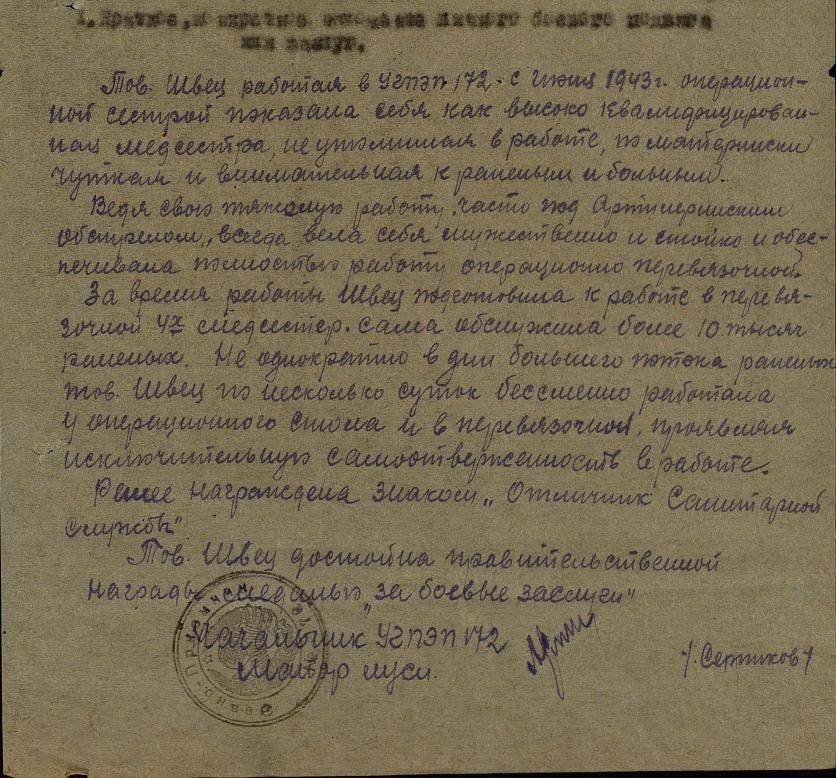 1. Краткое, конкретное изложение личного боевого подвига
или заслуг.
Тов. Швец работая в УГПЭП 172 - с июля 1943г. операцион-
ной сестрой показала себя как высоко квалифицирован-
ная медсестра, неутомимая в работе, по матерински
чуткая и внимательная к раненым и больным.
Ведя свою тяжелую работу, часто под Артиллерийским
обстрелом, всегда вела себя мужественно и стойко и обес-
печивала полностью работу операционно перевязочной.
За время работы Швец подготовила к работе в перевя-
зочной 47 медсестер. сама обслужила более 10 тысяч
раненых. Не однократно в дни большего потока раненых
тов. Швец по несколько суток бессменно работала
у операционного стола и в перевязочной, проявляя
исключительную самоотверженность в работе.
Ранее награждена значком „Отличник Санитарной
службы"
Тов. Швец достойна правительственной
награды медалью „за боевые заслуги"
Начальник УГПЭП 172
Майор м/с
/. Сертиков /